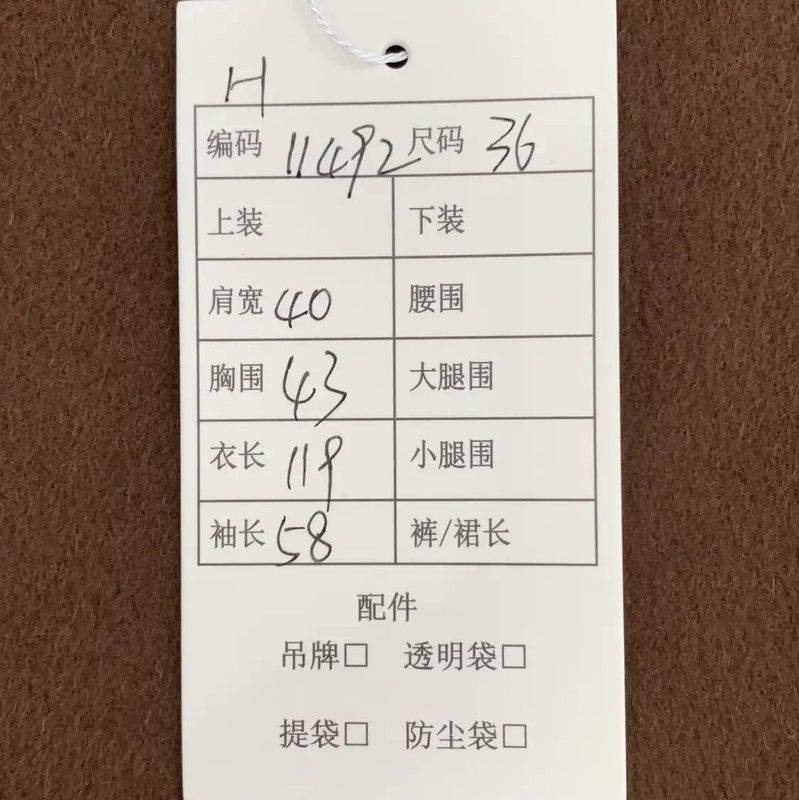 H
编码 11492 尺码 36
上装 下装
肩宽 40 腰围
胸围 43 大腿围
衣长 119 小腿围
袖长 58 裤/裙长
配件
吊牌□ 透明袋□
提袋□ 防尘袋□